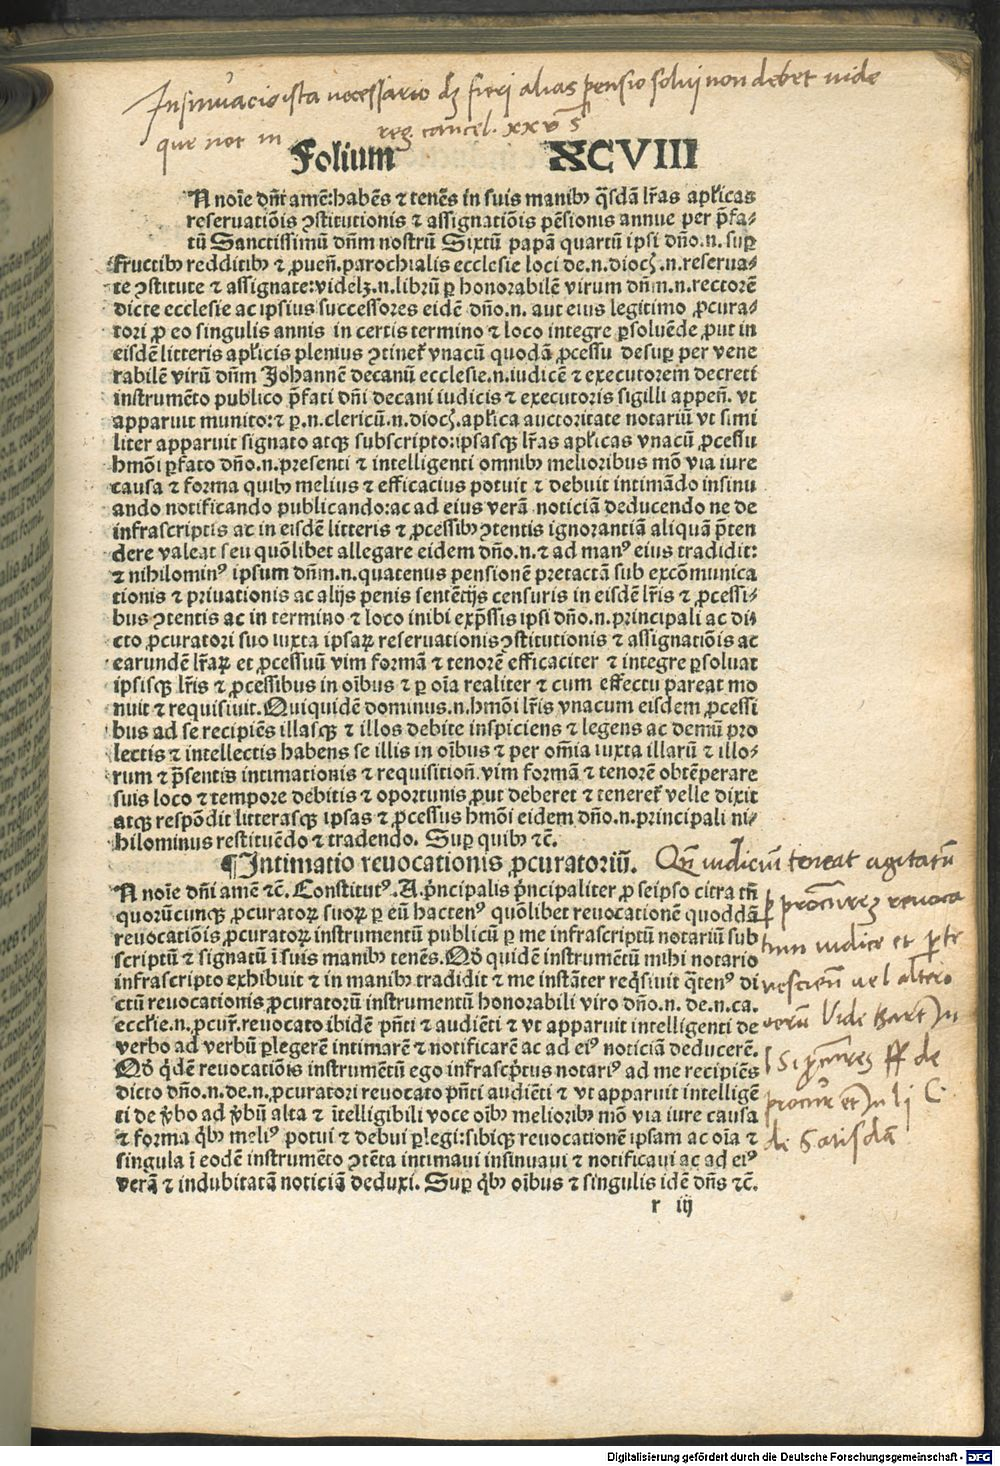 Insinuacio ista necessario dꝫ fieri alias pensio solui non debet vide
que not in reg. cancel. xxv
Folium XCVIII
N noīe dn̄i amē: habēs ⁊ tenēs in suis manibꝰ q̄sdā lr̄as apl̄icas
reseruatiōis ꝯstitutionis ⁊ assignatiōis pēsionis annue per p̄fa-
tū Sanctissimū dn̄m nostrū Sixtū papā quartū ipsi dn̄o.n. suꝑ
fructibꝰ redditibꝰ ⁊ ꝓuen̄. parochialis ecclesie loci de.n.dioc̄.n.reserua-
te ꝯstitute ⁊ assignate: videlꝫ.n.librū ꝑ honorabilē virum dn̄m.n.rectorē
dicte ecclesie ac ipsius successores eidē dn̄o.n. aut eius legitimo ꝓcura-
tori ꝓ eo singulis annis in certis termino ⁊ loco integre ꝑsoluēde ꝓut in
eisdē litteris apl̄icis plenius ꝯtinet̄ vnacū quodā ꝓcessu desuꝑ per vene
rabilē virū dn̄m Johannē decanū ecclesie.n.iudicē ⁊ executorem decreti
instrumēto publico p̄fati dn̄i decani iudicis ⁊ executoris sigilli appen̄. vt
apparuit munito: ⁊ ꝑ.n.clericū.n.dioc̄.apl̄ica auctoritate notariū vt simi
liter apparuit signato atqꝫ subscripto: ipsasqꝫ lr̄as apl̄icas vnacū ꝓcessu
hmōi p̄fato dn̄o.n.presenti ⁊ intelligenti omnibꝰ melioribus mō via iure
causa ⁊ forma quibꝰ melius ⁊ efficacius potuit ⁊ debuit intimādo insinu
ando notificando publicando: ac ad eius verā noticiā deducendo ne de
infrascriptis ac in eisdē litteris ⁊ ꝓcessibꝰ ꝯtentis ignorantiā aliquā p̄ten
dere valeat seu quōlibet allegare eidem dn̄o.n.⁊ ad manꝰ eius tradidit:
⁊ nihilominꝰ ipsum dn̄m.n.quatenus pensionē pretactā sub excōmunica
tionis ⁊ priuationis ac alijs penis sentētijs censuris in eisdē lr̄is ⁊ ꝓcessi-
bus ꝯtentis ac in termino ⁊ loco inibi exp̄ssis ipsi dn̄o.n.principali ac di
cto ꝓcuratori suo iuxta ipsaꝝ reseruationis ꝯstitutionis ⁊ assignatiōis ac
earundē lr̄aꝝ et ꝓcessuū vim formā ⁊ tenorē efficaciter ⁊ integre ꝑsoluat
ipsisqꝫ lr̄is ⁊ ꝓcessibus in oībus ⁊ ꝑ oīa realiter ⁊ cum effectu pareat mo
nuit ⁊ requisiuit. Quiquidē dominus.n.hmōi lr̄is vnacum eisdem ꝓcessi
bus ad se recipiēs illasqꝫ ⁊ illos debite inspiciens ⁊ legens ac demū pro
lectis ⁊ intellectis habens se illis in oībus ⁊ per om̄ia iuxta illarū ⁊ illo-
rum ⁊ p̄sentis intimationis ⁊ requisition̄. vim formā ⁊ tenorē obtēperare
suis loco ⁊ tempore debitis ⁊ oportunis ꝓut deberet ⁊ teneret̄ velle dixit
atqꝫ respōdit litterasqꝫ ipsas ⁊ ꝓcessus hmōi eidem dn̄o.n.principali ni-
hilominus restituēdo ⁊ tradendo. Suꝑ quibꝰ ⁊c̄.
¶Intimatio reuocationis ꝓcuratoriū.
N noīe dn̄i amē ⁊c̄. Constitutꝰ.A.p̄ncipalis p̄ncipaliter ꝓ seipso citra tn̄
quorūcunqꝫ ꝓcuratoꝝ suoꝝ ꝑ eū hactenꝰ quōlibet reuocationē quoddā
reuocatiōis ꝓcuratoꝝ instrumentū publicū ꝑ me infrascriptū notariū sub
scriptū ⁊ signatū ī suis manibꝰ tenēs. Qd̄ quidē instrumētū mihi notario
infrascripto exhibuit ⁊ in manibꝰ tradidit ⁊ me instāter reqͥsiuit q̄tenꝰ di
ctū reuocationis ꝓcuratorū instrumentū honorabili viro dn̄o.n. de.n.ca.
eccl̄ie.n.ꝓcur̄.reuocato ibidē pn̄ti ⁊ audiēti ⁊ vt apparuit intelligenti de
verbo ad verbū ꝑlegerē intimarē ⁊ notificarē ac ad eiꝰ noticiā deducerē.
Qd̄ qͥdē reuocatiōis instrumētū ego infrascp̄tus notariꝰ ad me recipiēs
dicto dn̄o.n.de.n.ꝓcuratori reuocato pn̄ti audiēti ⁊ vt apparuit intelligē
ti de v̄bo ad v̄bū alta ⁊ ītelligibili voce oībꝰ melioribꝰ mō via iure causa
⁊ forma qͥbꝰ meliꝰ potui ⁊ debui ꝑlegi: sibiqꝫ reuocationē ipsam ac oīa ⁊
singula ī eodē instrumēto ꝯtēta intimaui insinuaui ⁊ notificaui ac ad eiꝰ
verā ⁊ indubitatā noticiā deduxi. Suꝑ qͥbꝰ oībus ⁊ singulis idē dn̄s ⁊c̄.
r iij
Qn̄ iudiciū agitatū
ꝑ procuratorē reuoca
tum iudice et ꝑte
nesciēti vel
Vide Bart in
l Si ff de
procur et in l j C
de Satisdā
Digitalisierung gefördert durch die Deutsche Forschungsgemeinschaft - DFG